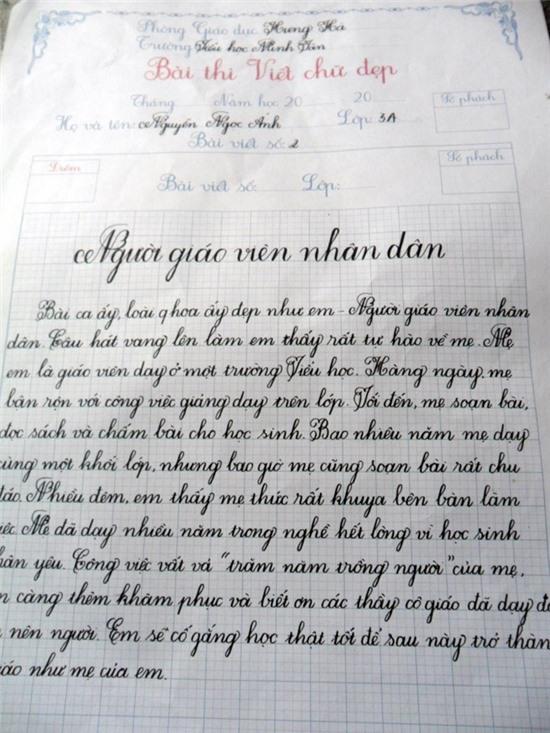 Phòng Giáo dục Hưng Hà
Trường Tiểu học Minh Tân
Bài thi Viết chữ đẹp
Tháng Năm học 20 20
Số phách
Họ và tên: Nguyễn Ngọc Ánh Lớp: 3A
Bài viết số: 2
Điểm
Số phách
Bài viết số: Lớp:
Người giáo viên nhân dân
Bài ca ấy, loài hoa ấy đẹp như em - Người giáo viên nhân
dân. Câu hát vang lên làm em thấy rất tự hào về mẹ. Mẹ
em là giáo viên dạy ở một trường Tiểu học. Hàng ngày, mẹ
bận rộn với công việc giảng dạy trên lớp. Tối đến, mẹ soạn bài,
đọc sách và chấm bài cho học sinh. Bao nhiêu năm mẹ dạy
cùng một khối lớp, nhưng bao giờ mẹ cũng soạn bài rất chu
đáo. Nhiều đêm, em thấy mẹ thức rất khuya bên bàn làm
việc. Mẹ đã dạy nhiều năm trong nghề hết lòng vì học sinh
thân yêu. Công việc vất vả "trăm năm trồng người" của mẹ,
càng thêm khâm phục và biết ơn các thầy cô giáo đã dạy
nên người. Em sẽ cố gắng học thật tốt để sau này trở thàn
áo như mẹ của em.